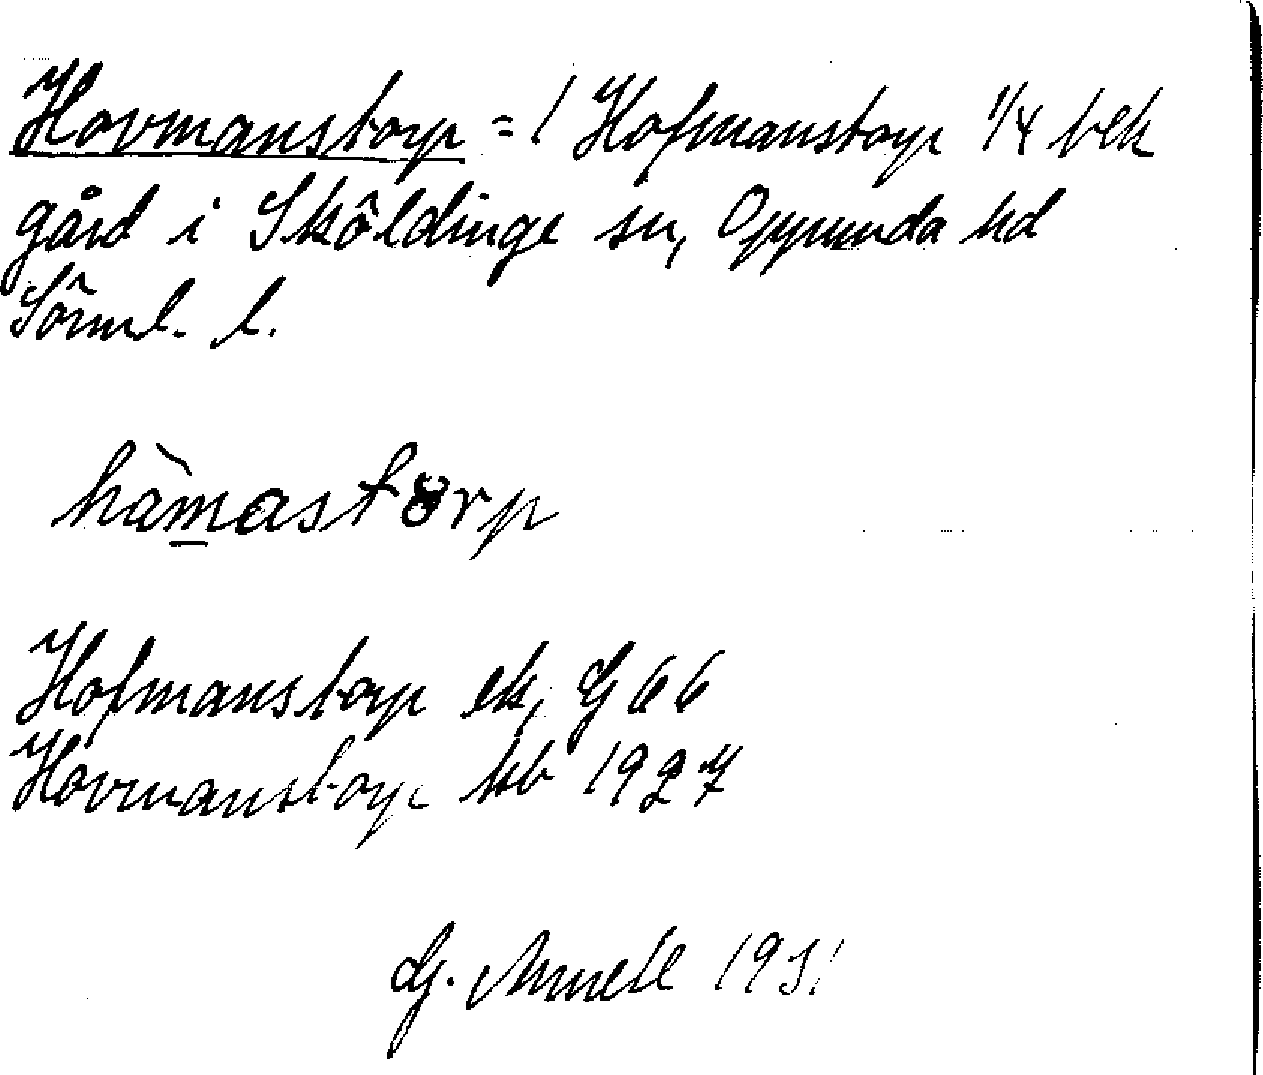 Hovmanstorp = 1 Hofmanstorp 1/4 bek
gård i Sköldinge sn, Oppunda hd
Sörml. l.
hàmastȣrp
Hofmanstorp ek, G 66
Hovmanstorp kb 1927
G. Annell 1931